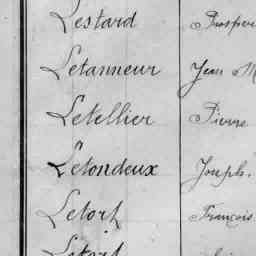 Lestard Prosper
Letanneur Jean M
Letellier Pierre
Letondeux Joseph.
Letort François
Letort